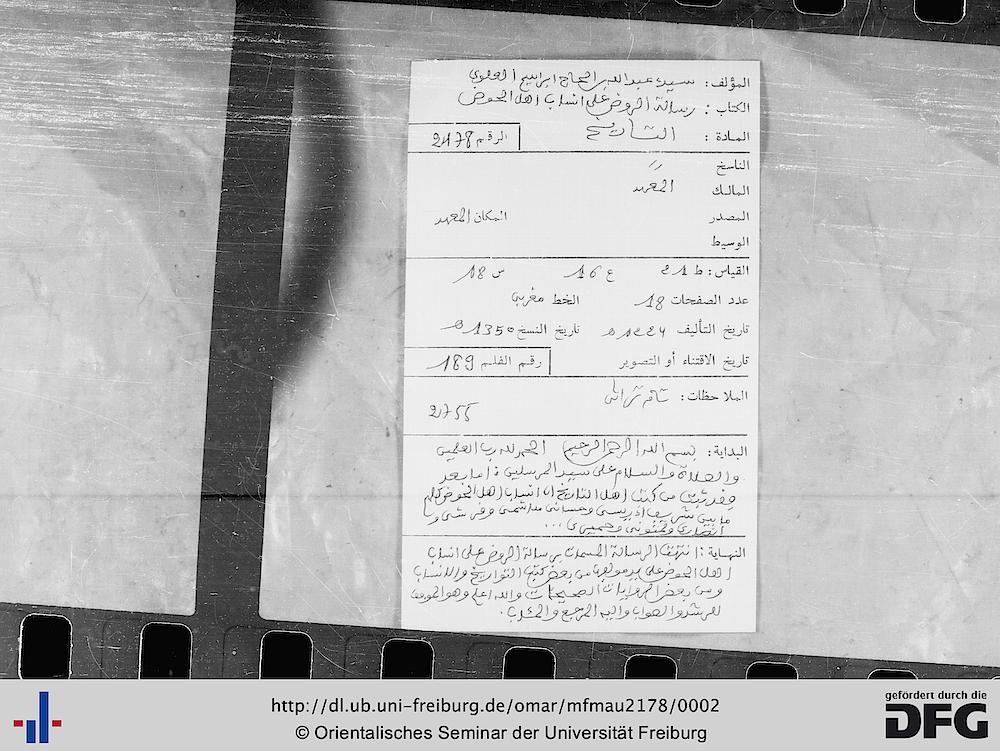 المؤلف: سيدي عبد الله بن الحاج ابراهيم العلوي
الكتاب: رسالة الروض على انساب اهل الحوض
المادة: التأريخ
الرقم 2178
الناسخ "
المالك المعهد
المصدر المكان المعهد
الوسيط
القياس: ط 21 ع 16 س 18
عدد الصفحات 18 الخط مغربي
تاريخ التأليف 1224ه تاريخ النسخ 1350ه
تاريخ الاقتناء أو التصوير رقم الفلم 189
الملاحظات:
2755
البداية: بسم الله الرحمن الرحيم الحمد لله رب العلمين
والصلاة والسلام على سيد المرسلين اما بعد
فقد ثبت من كتب اهل التاريخ ان انساب اهل الحوض كلهم
ما بين شريف ادريسي وحساني هاشمي وقرشي و
انصاري ولمتوني وحميري ...
النهاية: انتهت الرسالة المسمات برسالة الروض على انساب
اهل الحوض على يد مولفها من بعض كتب التواريخ والانساب
ومن بعض الروايات الصحيحات والله اعلم وهو الموفق
للرشد والصواب واليه المرجع والمئاب.
http://dl.ub.uni-freiburg.de/omar/mfmau2178/0002
© Orientalisches Seminar der Universität Freiburg
gefördert durch die
DFG